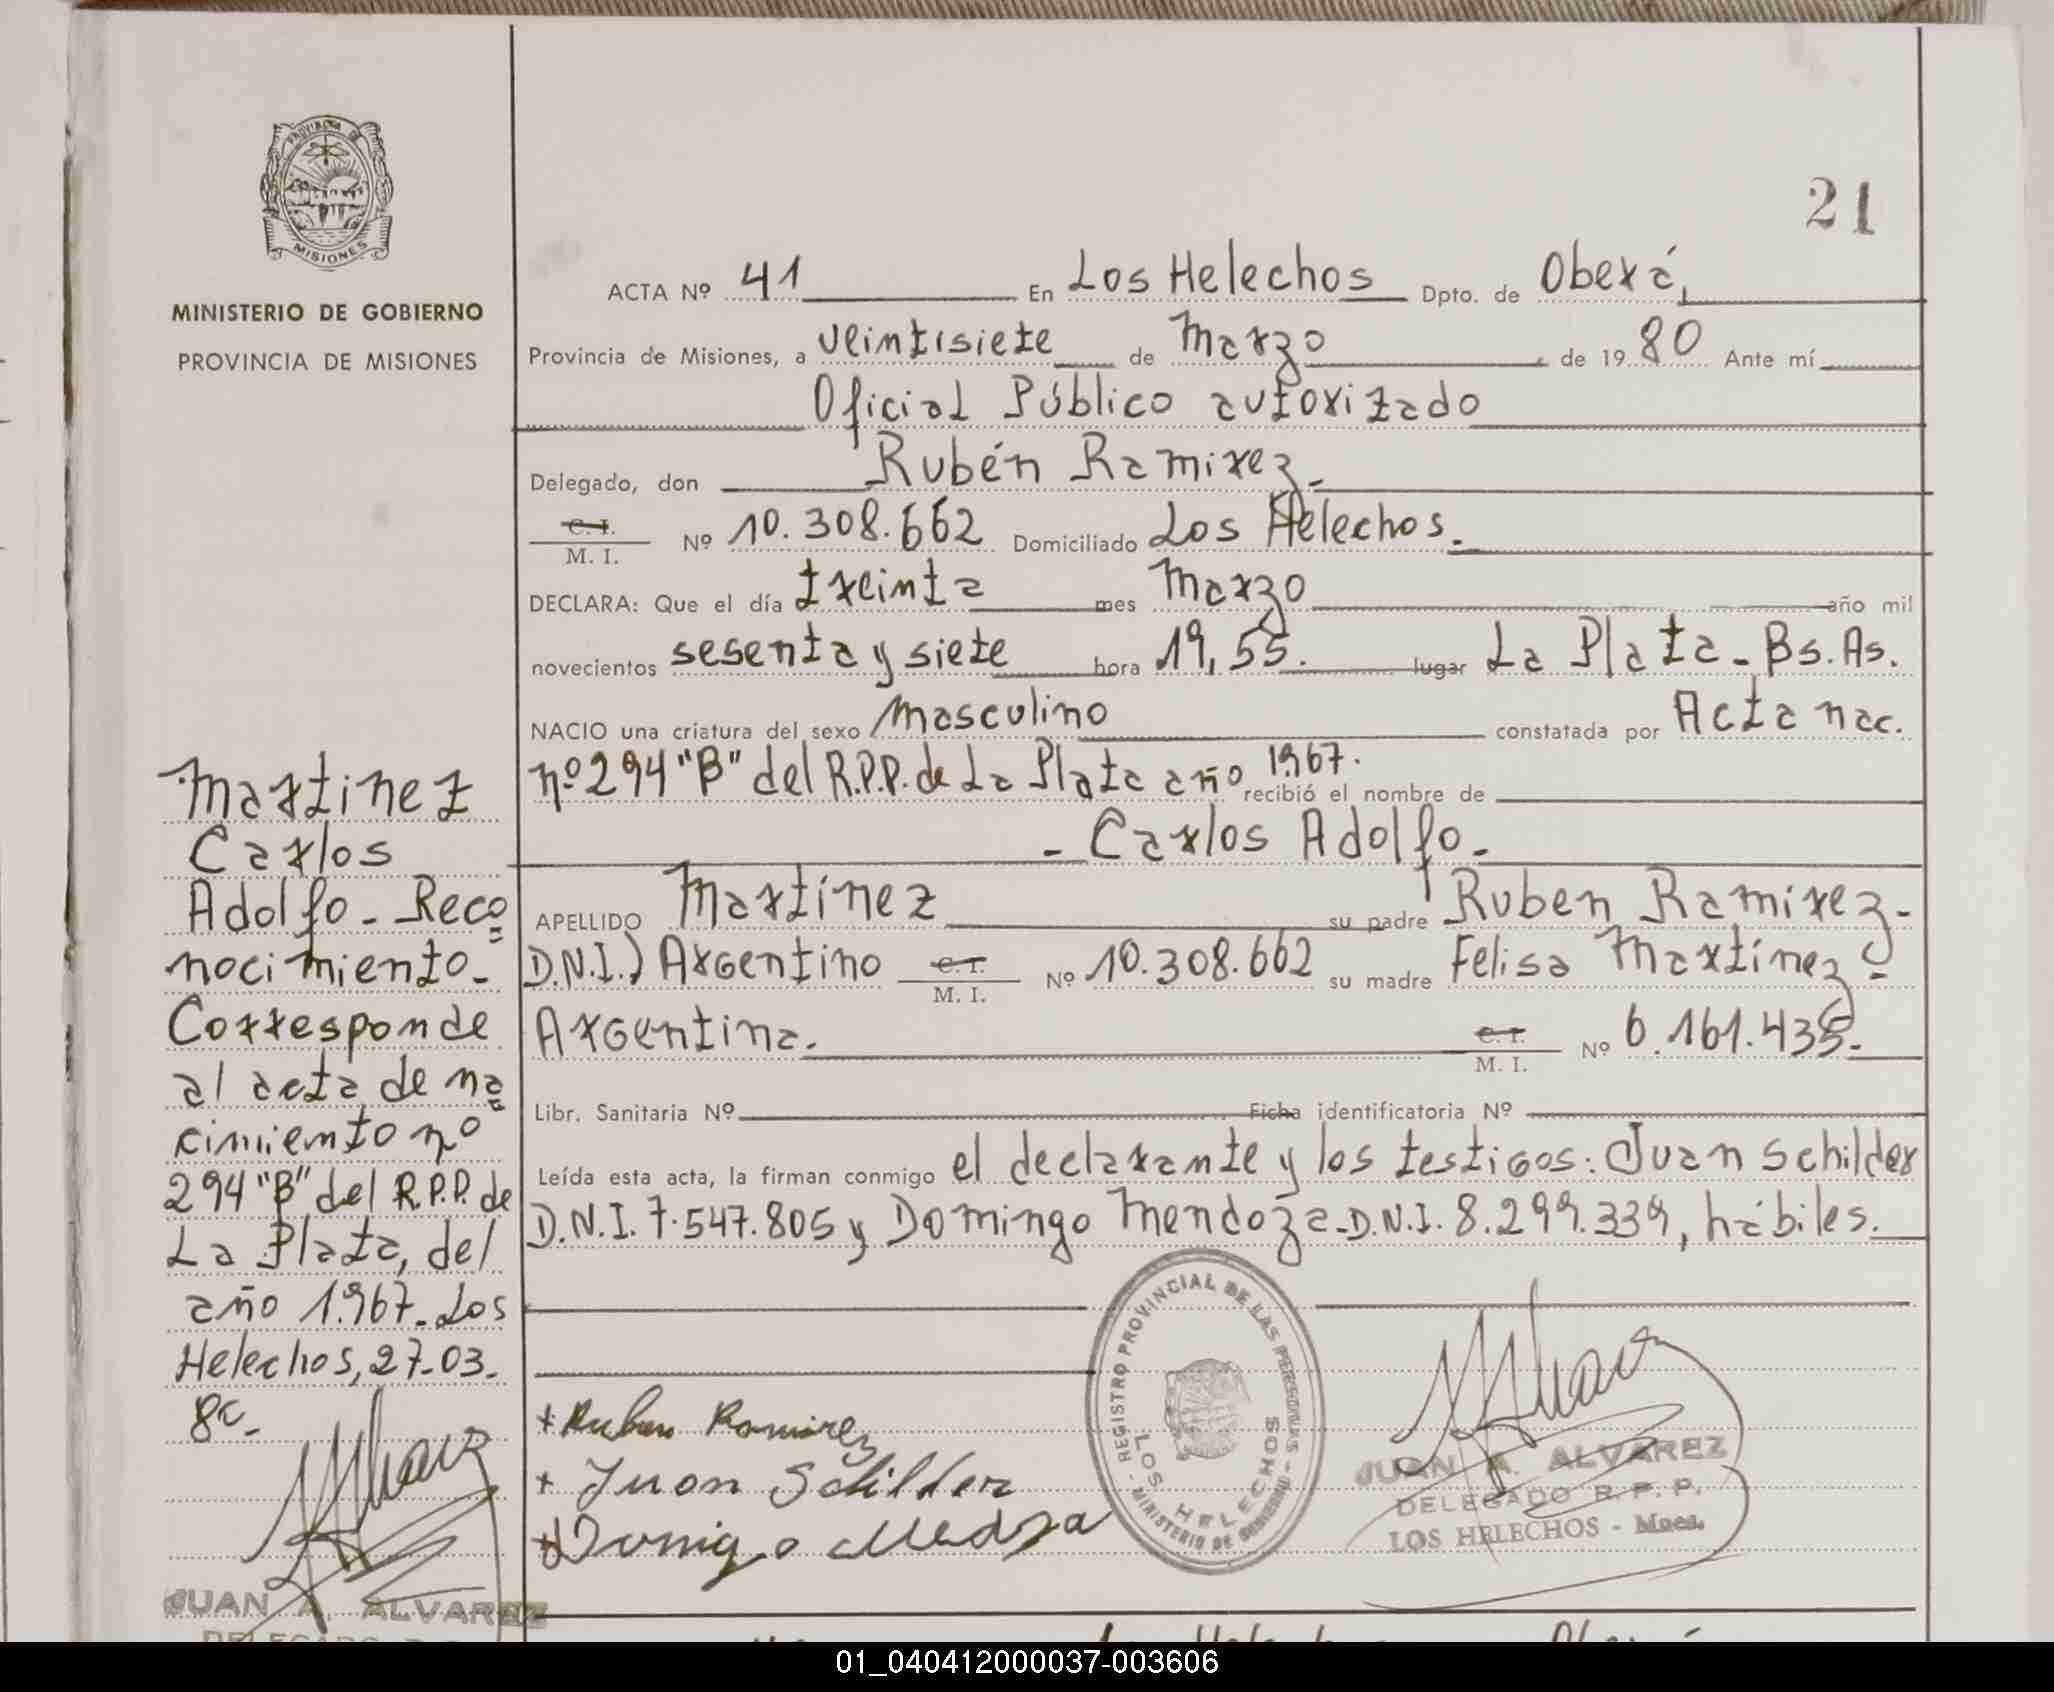 PROVINCIA DE
MISIONES
MINISTERIO DE GOBIERNO
PROVINCIA DE MISIONES
21
ACTA Nº 41 En Los Helechos Dpto. de Oberá,
Provincia de Misiones, a veintisiete de Marzo de 19 80 Ante mí
Oficial Público autorizado
Delegado, don Rubén Ramirez
C. I.
M. I. Nº 10.308.662 Domiciliado Los Helechos.
DECLARA: Que el día treinta mes Marzo año mil
novecientos sesenta y siete hora 19,55. lugar La Plata - Bs. As.
NACIO una criatura del sexo Masculino constatada por Acta nac.
nº 294 "B" del R.P.P. de La Plata año 1967. recibió el nombre de
- Carlos Adolfo -
APELLIDO Martínez su padre Ruben Ramirez -
D.N.I.) Argentino C. I. M. I. Nº 10.308.662 su madre Felisa Martínez -
Argentina. C. I. M. I. Nº 6.161.435.-
Libr. Sanitaria Nº Ficha identificatoria Nº
Leída esta acta, la firman conmigo el declarante y los testigos: Juan Schilder
D.N.I. 7.547.805 y Domingo Mendoza - D.N.I. 8.299.339, hábiles.
Martinez
Carlos
Adolfo - Reco
nocimiento -
Corresponde
al acta de na
cimiento nº
294 "B" del R.P.P. de
La Plata, del
año 1.967 - Los
Helechos, 27-03-
80 -
+ Ruben Ramirez
+ Juan Schilder
+ Domigo Medsa
REGISTRO PROVINCIAL DE LAS PERSONAS
LOS HELECHOS
MINISTERIO DE GOBIERNO
JUAN A. ALVAREZ
DELEGADO R. P. P.
LOS HELECHOS - Mnes.
JUAN A. ALVAREZ
01_040412000037-003606